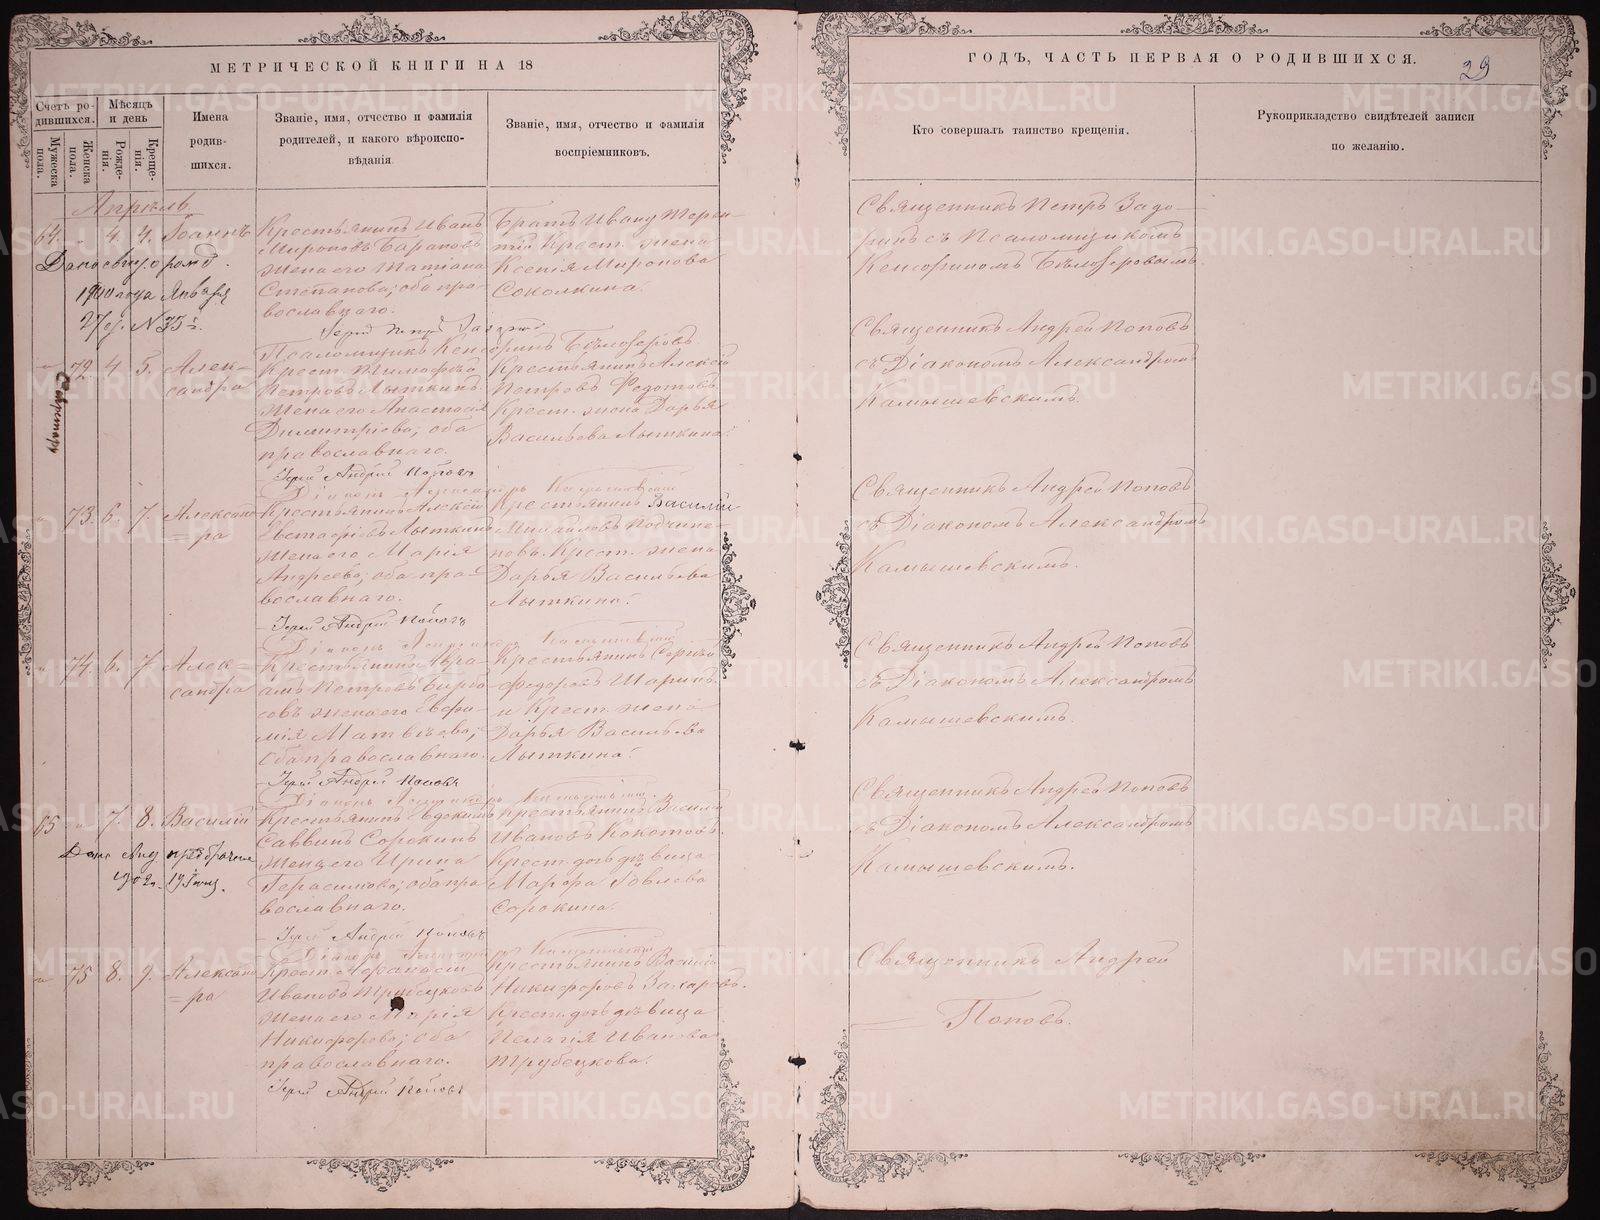 МЕТРИЧЕСКОЙ КНИГИ НА 18
Счетъ ро-
дившихся.
Мужеска
пола.
Женска
пола.
Мѣсяцъ
и день
Рожде-
нія.
Креще-
нія.
Имена
родив-
шихся.
Званіе, имя, отчество и фамилія
родителей, и какого вѣроиспо-
вѣданія.
Званіе, имя, отчество и фамилія
воспріемниковъ.
Апрѣль
64. " 4. 4. Іоаннъ
Дано свид. о рожд.
1900 года Января
27 г. №
Крестьянинъ Иванъ
Мироновъ Барановъ
жена его Татіана
Степанова; оба пра-
вославнаго.
Братъ Ивану Терен-
тій Крест. жена
Ксенія Миронова
Соколкина.
Іерей Петръ
Псаломщикъ Кенсоринъ Бѣлозеровъ
" 72 4. 5. Алек-
сандра
Крест. Тимофей
Петровъ Лыткинъ
жена его Анастасія
Димитріева; оба
православнаго.
Крестьянинъ Алексѣй
Петровъ Федотовъ
Крест. жена Дарья
Васильева Лыткина.
Іерей Андрей Поповъ
Діаконъ Александръ Камышевскій
" 73. 6. 7. Александ-
ра
Крестьянинъ Алексѣй
Евстафіевъ Лыткинъ
жена его Марія
Андреева; оба пра-
вославнаго.
Крестьянинъ Василій
Крест. жена
Дарья Васильева
Лыткина.
Іерей Андрей Поповъ
Діаконъ Александръ Камышевскій
" 74. 6. 7. Алек-
сандра
Крестьянинъ Авра-
амъ Петровъ
жена его Евфи-
мія Матвѣева;
оба православнаго.
Крестьянинъ Сергѣй
Федоровъ Шаринъ
и Крест. жена
Дарья Васильева
Лыткина.
Іерей Андрей Поповъ
Діаконъ Александръ Камышевскій
65 " 7. 8. Василій
1902 г.
Крестьянинъ Евдокимъ
Саввинъ Сорокинъ
жена его Ирина
Герасимова; оба пра
вославнаго.
Крестьянинъ Василій
Ивановъ Кокотовъ
Крест. дочь дѣвица
Марфа Іовлева
Сорокина.
Іерей Андрей Поповъ
Діаконъ Александръ Камышевскій
" 75 8. 9. Александ
ра
Крест. Афанасій
Ивановъ Трубецковъ
жена его Марія
Никифорова; оба
православнаго.
Крестьянинъ Василій
Никифоровъ Захаровъ.
Крест. дочь дѣвица
Пелагія Иванова
Трубецкова.
Іерей Андрей Поповъ
ГОДЪ, ЧАСТЬ ПЕРВАЯ О РОДИВШИХСЯ.
29
Кто совершалъ таинство крещенія.
Рукоприкладство свидѣтелей записи
по желанію.
Священникъ Петръ Задо-
ринъ съ Псаломщикомъ
Кенсориномъ Бѣлозеровымъ
Священникъ Андрей Поповъ
съ Діакономъ Александромъ
Камышевскимъ.
Священникъ Андрей Поповъ
съ Діакономъ Александромъ
Камышевскимъ.
Священникъ Андрей Поповъ
съ Діакономъ Александромъ
Камышевскимъ.
Священникъ Андрей Поповъ
съ Діакономъ Александромъ
Камышевскимъ.
Священникъ Андрей
Поповъ.
METRIKI.GASO-URAL.RU